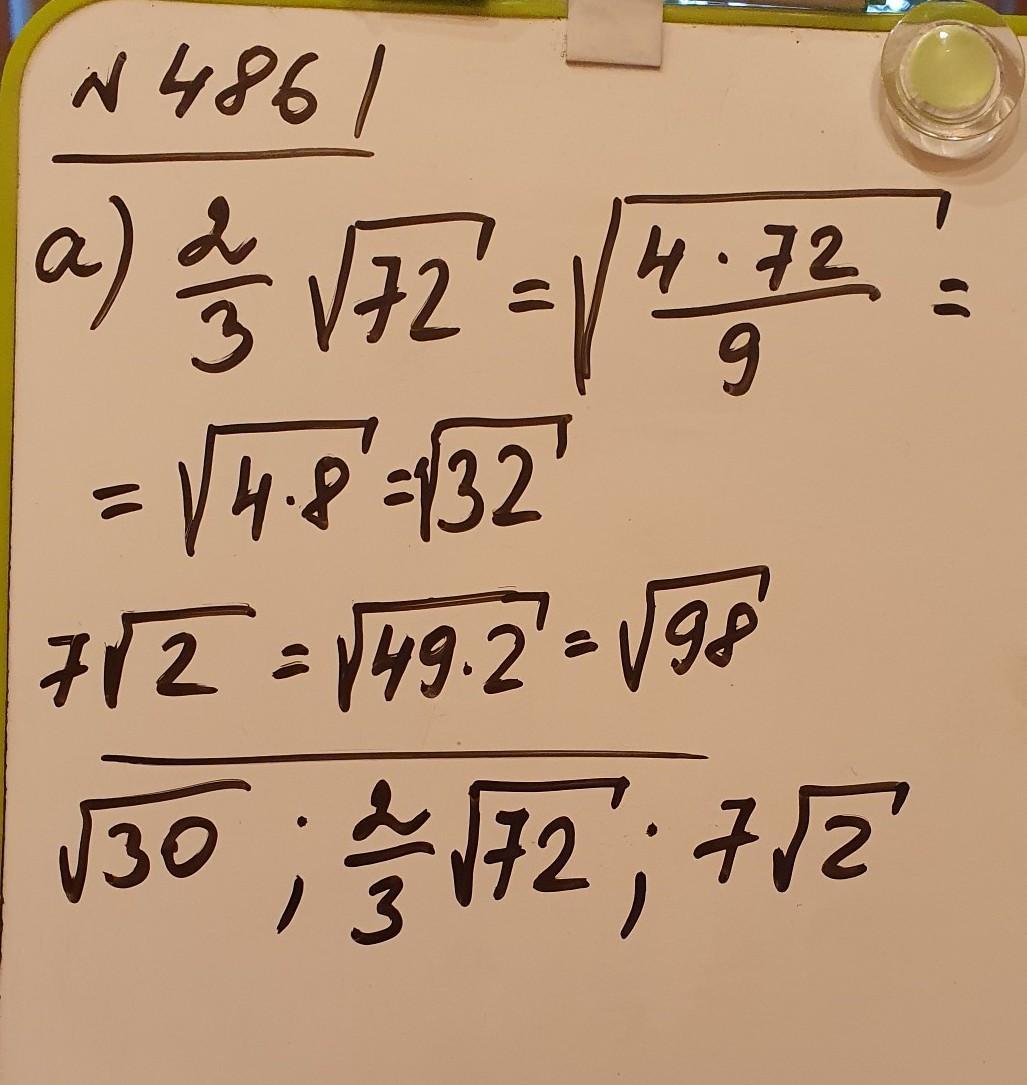 N 486
a) 2/3 √72 = √(4 · 72 / 9) =
= √4·8 = √32
7√2 = √49·2 = √98
√30 ; 2/3 √72 ; 7√2